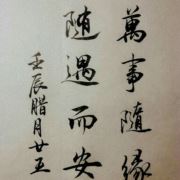 萬事隨緣
隨遇而安
壬辰腊月廿五